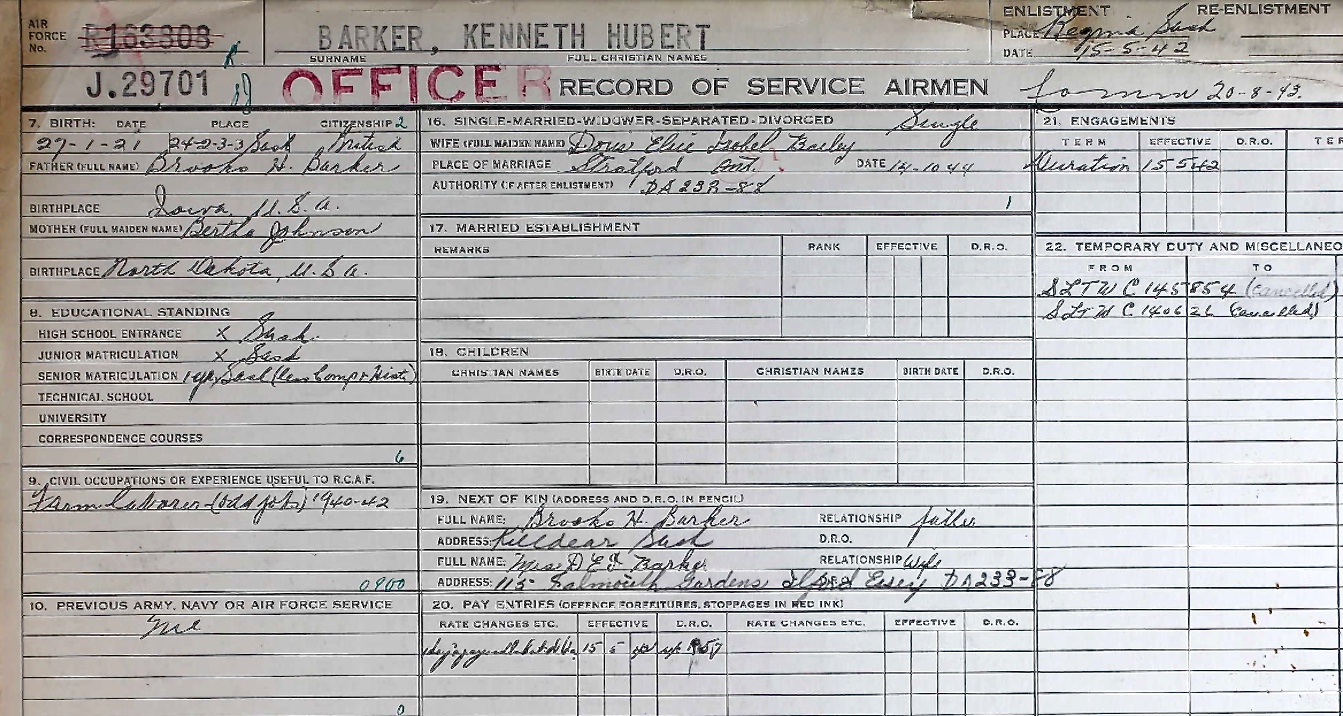 AIR FORCE No. R163808 BARKER, KENNETH HUBERT
SURNAME FULL CHRISTIAN NAMES
ENLISTMENT RE-ENLISTMENT
PLACE Regina Sask
DATE 15-5-42
J.29701 OFFICER RECORD OF SERVICE AIRMEN 20-8-43.
7. BIRTH: DATE PLACE CITIZENSHIP 2
27-1-21 24-2-3-3 Sask British
FATHER (FULL NAME) Brooks H. Barker
BIRTHPLACE Iowa, U.S.A.
MOTHER (FULL MAIDEN NAME) Bertha Johnson
BIRTHPLACE North Dakota, U.S.A.
8. EDUCATIONAL STANDING
HIGH SCHOOL ENTRANCE X Sask.
JUNIOR MATRICULATION X Sask
SENIOR MATRICULATION 1 yr Sask (less Comp & Hist)
TECHNICAL SCHOOL
UNIVERSITY
CORRESPONDENCE COURSES
6
9. CIVIL OCCUPATIONS OR EXPERIENCE USEFUL TO R.C.A.F.
Farm Laborer (odd jobs) 1940-42
0900
10. PREVIOUS ARMY, NAVY OR AIR FORCE SERVICE
0
16. SINGLE-MARRIED-WIDOWER-SEPARATED-DIVORCED Single
WIFE (FULL MAIDEN NAME) Doris Elsie Isobel Bailey
PLACE OF MARRIAGE Stratford Ont. DATE 14-10-44
AUTHORITY (IF AFTER ENLISTMENT) DA 233-88
1
17. MARRIED ESTABLISHMENT
REMARKS RANK EFFECTIVE D.R.O.
18. CHILDREN
CHRISTIAN NAMES BIRTH DATE D.R.O. CHRISTIAN NAMES BIRTH DATE D.R.O.
19. NEXT OF KIN (ADDRESS AND D.R.O. IN PENCIL)
FULL NAME: Brooks H. Barker RELATIONSHIP father
ADDRESS: Killdear Sask D.R.O.
FULL NAME: Mrs D E I Barker RELATIONSHIP Wife
ADDRESS: 115 Falmouth Gardens Ilford Essex DA233-88
20. PAY ENTRIES (OFFENCE FORFEITURES, STOPPAGES IN RED INK)
RATE CHANGES ETC. EFFECTIVE D.R.O. RATE CHANGES ETC. EFFECTIVE D.R.O.
15 5 42
21. ENGAGEMENTS
TERM EFFECTIVE D.R.O. TER
Duration 15 5 42
22. TEMPORARY DUTY AND MISCELLANEO
FROM TO
SLTW C 145854 (cancelled)
SLTW C 140626 (cancelled)